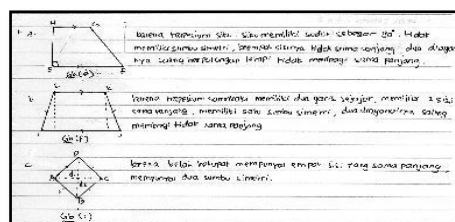 1. a. karena trapesium siku-siku memiliki sudut sebesar 90°, tidak
memiliki sumbu simetri, keempat sisinya tidak sama panjang, dua diago
nya saling berpotongan tetapi tidak membagi sama panjang.
Gb (a)
b. karena trapesium samakaki memiliki dua garis sejajar, memiliki 2 sisi
sama panjang, memiliki satu sumbu simetri, dua diagonalnya saling
membagi tidak sama panjang
Gb (F)
c. karena belah ketupat mempunyai empat sisi yang sama panjang,
mempunyai dua sumbu simetri.